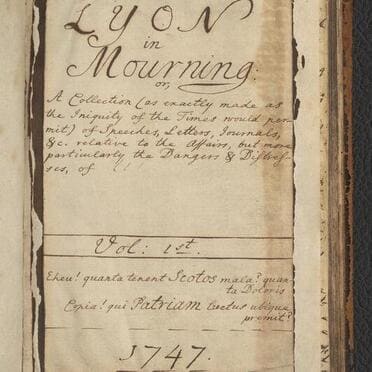 LYON
in
Mourning:
or,
A Collection (as exactly made as
the Iniquity of the Times would per-
mit) of Speeches, Letters, Journals,
&c. relative to the Affairs, but more
particularly the Dangers & Distres-
ses, of
Vol: 1st.
Eheu! quanta tenent Scotos mala? quan-
ta Doloris
Copia! qui Patriam luctus ubique
premit?
1747.